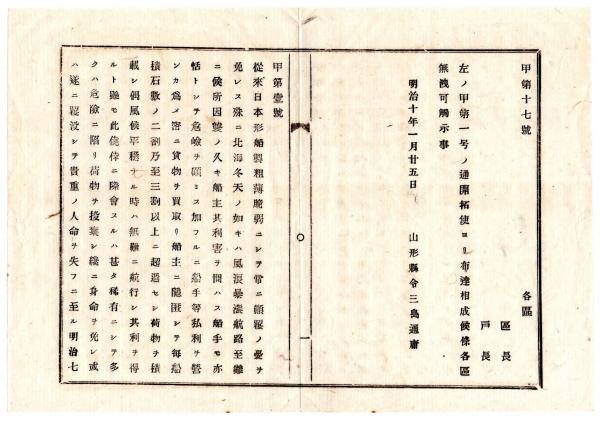 甲第十七號
各區
區長
戸長
左ノ甲第一号ノ通開拓使ヨリ布達相成候條各區
無洩可觸示事
明治十年一月廿五日
山形縣令三島通庸
甲第壹號
從來日本形船製粗薄脆弱ニシテ常ニ顛覆ノ憂ヲ
免レス殊ニ北海冬天ノ如キハ風浪暴漲航路至難
ニ候所因襲ノ久キ船主其利害ヲ問ハス船手モ亦
恬トシテ危嶮ヲ顧ミス加フルニ船手等私利ヲ營
ンカ爲メ密ニ貨物ヲ買取リ船主ニ隱匿シテ毎船
積石數ノ二割乃至三割以上ニ超過セシ荷物ヲ積
載シ偶風候平穩ナル時ハ無難ニ航行シ其利ヲ得
ルト雖モ此僥倖ニ際會スルハ甚タ稀有ニシテ多
クハ危險ニ陷リ荷物ヲ投棄シ纔ニ身命ヲ免レ或
ハ遂ニ覆沒シテ貴重ノ人命ヲ失フニ至ル明治七